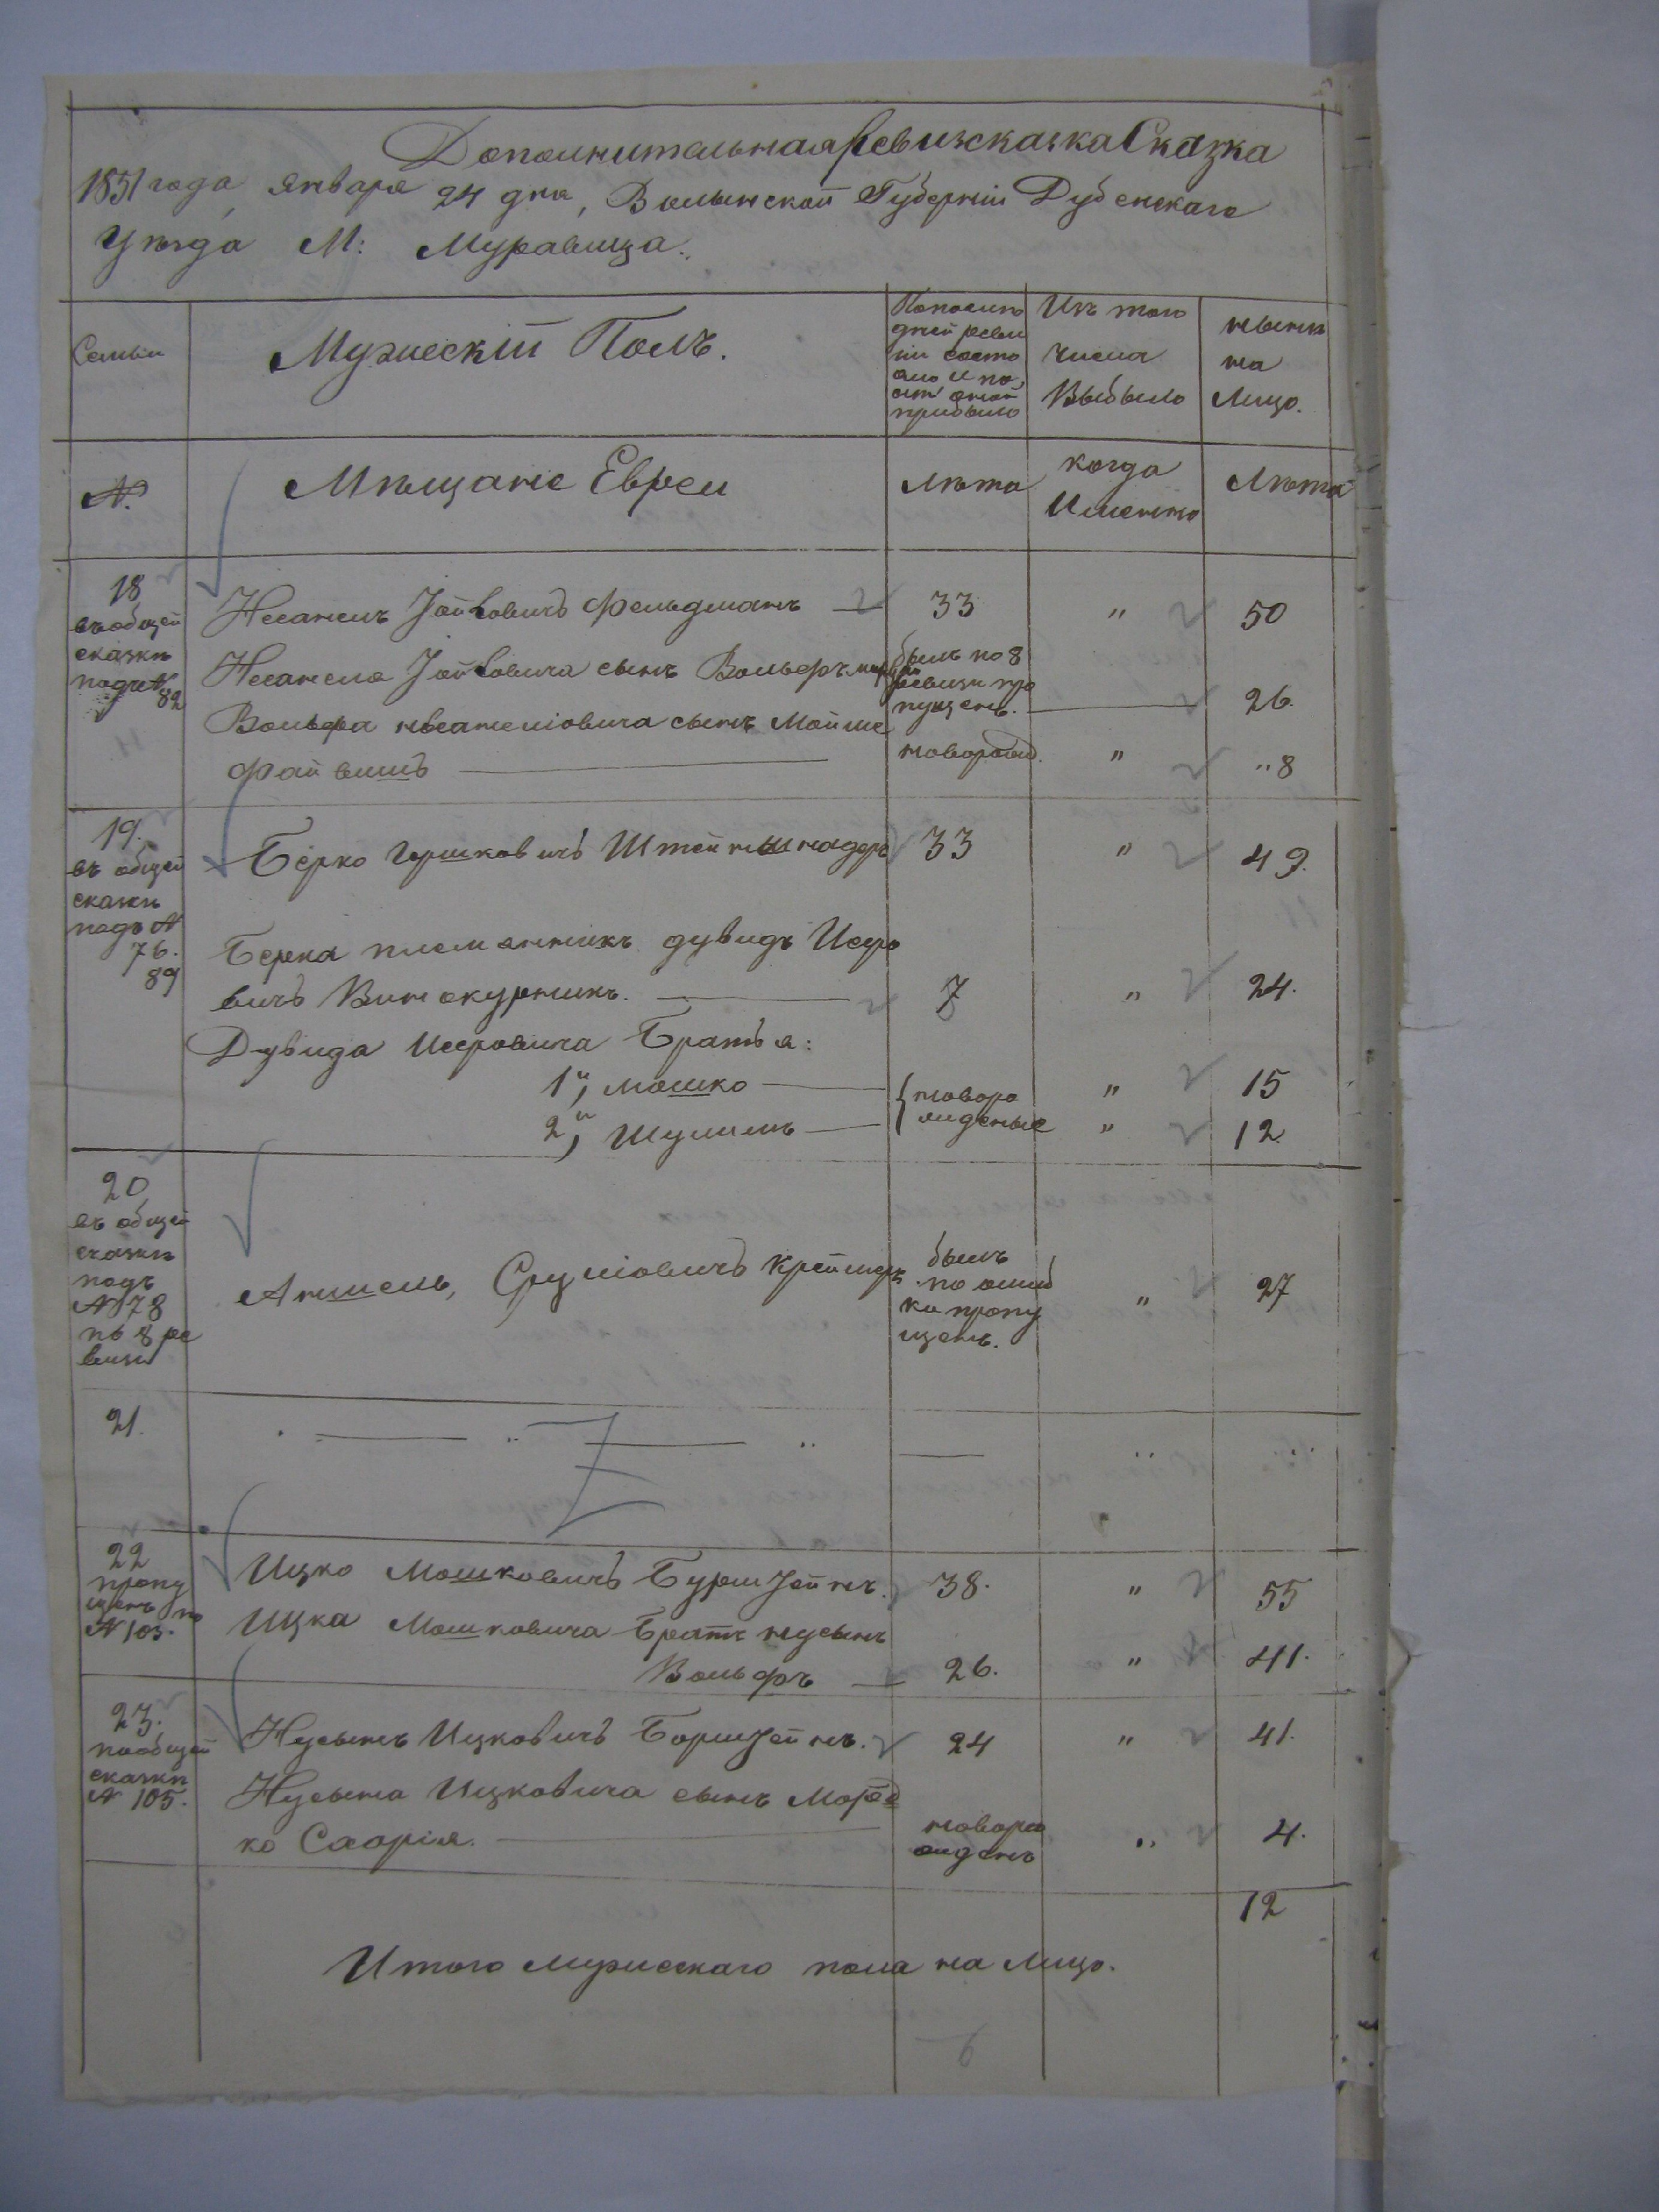 Дополнительная Ревизская Сказка
1851 года, января 24 дня, Волынской Губерніи Дубенскаго
Уѣзда М: Муравица.
Семьи
Мужескій Полъ.
По послѣд
ней реви
зіи состо
яло и по,
слѣ оной
прибыло
Изъ того
числа
Выбыло
нынѣ
на
Лицо.
№
Мѣщане Евреи
Лѣта
когда
Именно
Лѣта
18
въ общей
сказкѣ
подъ №
82
Несанель Фельдманъ
33
"
50
Несанеля сынъ Вольфъ
былъ по 8
ревизи про
пущенъ.
26.
Вольфа сынъ Мойше
Файвишъ
новорожд.
"
"8
19.
въ общей
сказкѣ
подъ №
76.
89
Берко Гершковичъ Штейншнадеръ
33
"
49.
Берка племянникъ дувидъ Исро
вичъ Винокурникъ.
7
"
24.
Дувида Исеровича Братья:
1й, мошко
{новоро
"
15
2й, Шулимъ
жденые
"
12.
20
въ общей
сказкѣ
подъ
№ 78
по 8 ре
визи
Аншель, Сруліовичъ Крейшеръ
былъ
по ошиб
ки пропу
щенъ.
"
27
21.
22
пропу
щенъ по
№ 103.
Ицко Мошковичъ Бурштейнъ.
38.
"
55
Ицка Мошковича Братъ нусынъ
Вольфъ
26.
"
41.
23.
пообщей
сказкѣ
№ 105.
Нусынъ Ицковичъ Борштейнъ.
24
"
41.
Нусына Ицковича сынъ Морд
ко
новоро
жденъ
"
4.
12
Итого мужескаго пола на Лицо.